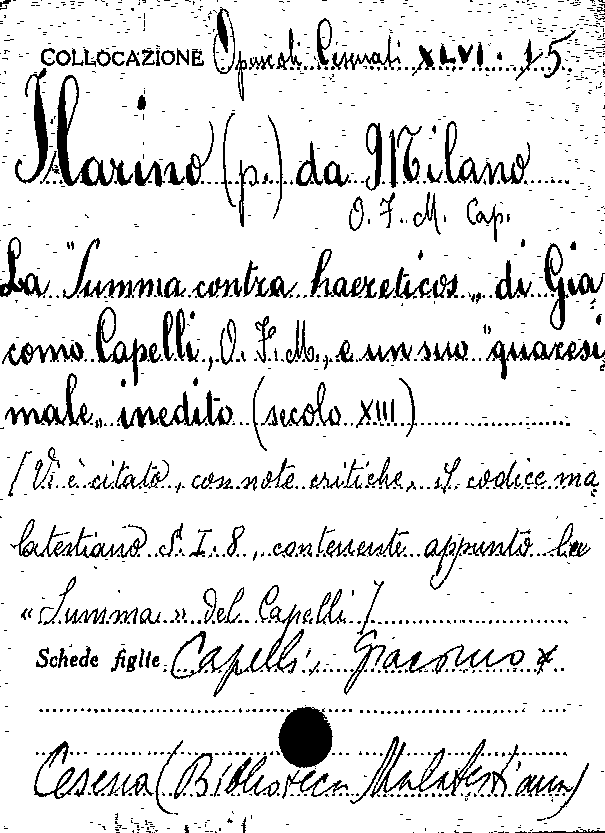 COLLOCAZIONE Opuscoli Cesenati XLVI. 15
Ilarino (p.) da Milano
O. F. M. Cap.
La "Summa contra haereticos„ di Gia
como Capelli, O. F. M., e un suo "quaresi
male„ inedito (secolo XIII)
[Vi è citato, con note critiche, il codice ma
latestiano S. I. 8, contenente appunto la
«Summa» del Capelli]
Schede figlie Capelli, Giacomo x
Cesena (Biblioteca Malatestiana)